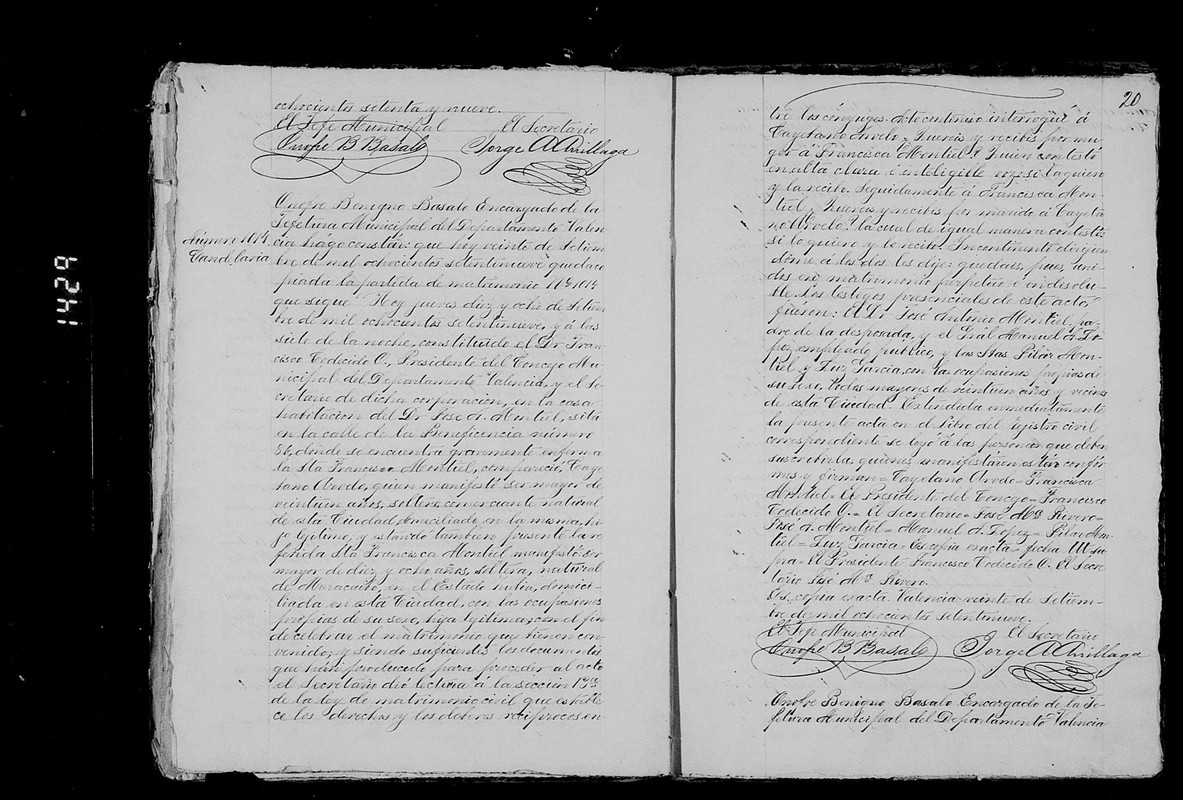 1429
ochocientos setenta y nueve.
El Jefe Municipal El Secretario
Onofre B Basalo Jorge A Arrillaga
Número 1014.
Candelaria
Onofre Benigno Basalo Encargado de la
Jefetura Municipal del Departamento Valen-
cia hago constar: que hoy veinte de Setiem-
bre de mil ochocientos setentinueve queda co-
piada la partida de matrimonio Nº 1014
que sigue "Hoy jueves diez y ocho de Setiem
bre de mil ochocientos setentinueve, y á las
siete de la noche, constituido el Dr Fran-
cisco Codecido O., Presidente del Concejo Mu-
nicipal del Departamento Valencia, y el Se-
cretario de dicha corporacion, en la casa
habitacion del Dr José A. Montiel, sita
en la calle de la Beneficencia número
56, donde se encuentra gravemente enferma
la Sta Francisca Montiel, compareció, Caye-
tano Arvelo, quien manifestó ser mayor de
veintiun años, soltero, comerciante natural
de esta Ciudad, domiciliado en la misma, hi-
jo legítimo, y estando tambien presente la re
ferida Sta Francisca Montiel manifestó ser
mayor de diez y ocho años, soltera, natural
de Maracaibo, en el Estado Zulia, domici-
liada en esta Ciudad, con las ocupaciones
propias de su sexo, hija legítima; con el fin
de celebrar el matrimonio que tienen con-
venido; y siendo suficientes los documentos
que han producido para proceder al acto
el Secretario dió lectura á la seccion 13ª
de la ley de matrimonio civil que estable
ce los derechos y los deberes recíprocos en-
20
tre los cónyuges. Acto continuo interrogué á
Cayetano Arvelo ¿Quereis y recibis por mu-
ger á Francisca Montiel? Quien contestó
en alta clara é inteligible voz: si la quiero
y la recibo. Seguidamente á Francisca Mon-
tiel ¿Quereis y recibis por marido á Cayeta
no Arvelo? la cual de igual manera contestó:
si lo quiero y le recibo. Incontinenti dirigien
dome á los dos les dije: quedais, pues, uni-
dos en matrimonio perpétuo é indisolu-
ble. Los testigos presenciales de este acto
fueron: El Dr José Antonio Montiel, pa-
dre de la desposada, y el Gral Manuel A. Ló-
pez, empleado público, y las Stas Pilar Mon-
tiel y Luz Garcia, con las ocupaciones propias de
su sexo. Todos mayores de veintiun años, y vecinos
de esta Ciudad. Extendida inmediatamente
la presente acta en el libro del registro civil
correspondiente se leyó á las personas que deben
suscribirla, quienes manifestaron estar confor
mes y firman = Cayetano Arvelo = Francisca
Montiel = El Presidente del Concejo = Francisco
Codecido O. = El Secretario = José Mª Rivero =
José A. Montiel = Manuel A. López = Pilar Mon-
tiel = Luz Garcia = Es copia exacta = fecha Ut su
pra = El Presidente Francisco Codecido O. El Secre
tario José Mª Rivero.
Es copia exacta. Valencia veinte de Setiem-
bre de mil ochocientos setentinueve.
El Jefe Municipal El Secretario
Onofre B Basalo Jorge A Arrillaga
Onofre Benigno Basalo Encargado de la Je-
fetura Municipal del Departamento Valencia